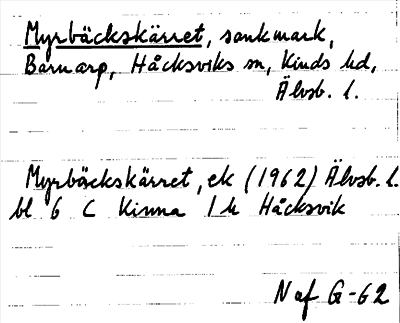 Myrbäckskärret, sankmark,
Barnarp, Håcksviks sn, Kinds hd,
Älvsb. l.
Myrbäckskärret, ek (1962) Älvsb. l.
bl 6 C Kinna 1 h Håcksvik
N af G-62